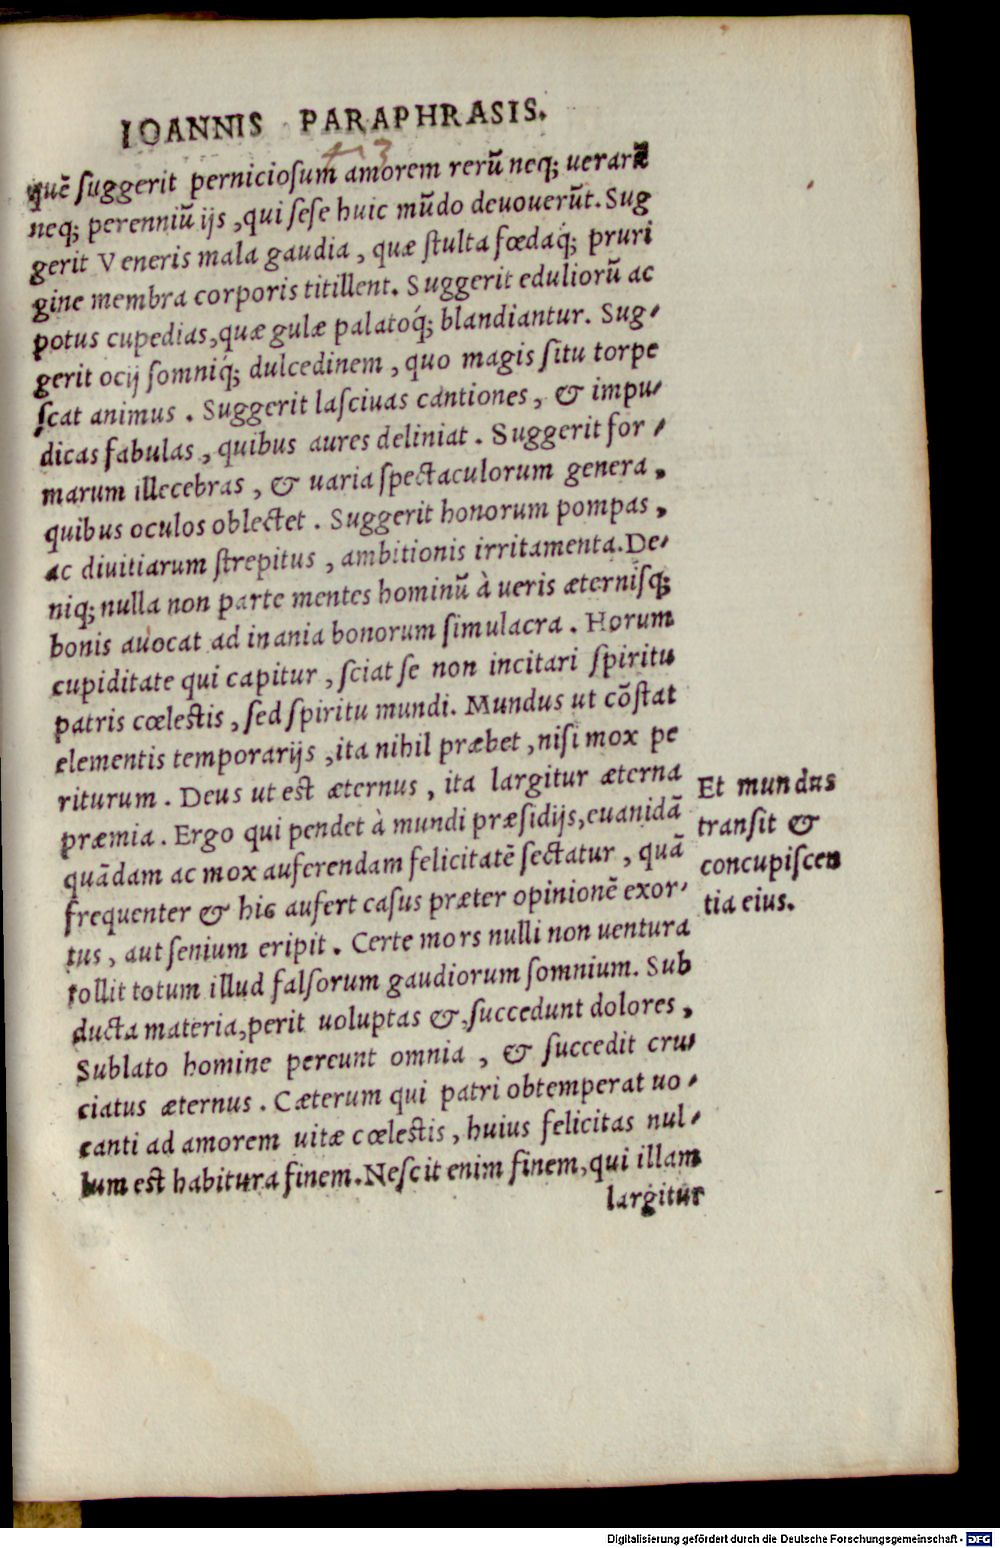 IOANNIS PARAPHRASIS.
413
quē suggerit perniciosum amorem rerū neq; uerarū
neq; perenniū ijs, qui sese huic mūdo deuouerūt. Sug
gerit Veneris mala gaudia, quæ stulta fœdaq́; pruri
gine membra corporis titillent. Suggerit eduliorū ac
potus cupedias, quæ gulæ palatoq́; blandiantur. Sug-
gerit ocij somniq́; dulcedinem, quo magis situ torpe
scat animus. Suggerit lasciuas cantiones, & impu-
dicas fabulas, quibus aures deliniat. Suggerit for-
marum illecebras, & uaria spectaculorum genera,
quibus oculos oblectet. Suggerit honorum pompas,
ac diuitiarum strepitus, ambitionis irritamenta. De-
niq; nulla non parte mentes hominū à ueris æternisq;
bonis auocat ad inania bonorum simulacra. Horum
cupiditate qui capitur, sciat se non incitari spiritu
patris cœlestis, sed spiritu mundi. Mundus ut cōstat
elementis temporarijs, ita nihil præbet, nisi mox pe
riturum. Deus ut est æternus, ita largitur æterna
præmia. Ergo qui pendet à mundi præsidijs, euanidā
quādam ac mox auferendam felicitatē sectatur, quā
frequenter & hic aufert casus præter opinionē exor-
tus, aut senium eripit. Certe mors nulli non uentura
tollit totum illud falsorum gaudiorum somnium. Sub
ducta materia, perit uoluptas &, succedunt dolores,
Sublato homine pereunt omnia, & succedit cru-
ciatus æternus. Cæterum qui patri obtemperat uo-
canti ad amorem uitæ cœlestis, huius felicitas nul-
lum est habitura finem. Nescit enim finem, qui illam
largitur
Et mundus
transit &
concupiscen
tia eius.
Digitalisierung gefördert durch die Deutsche Forschungsgemeinschaft - DFG